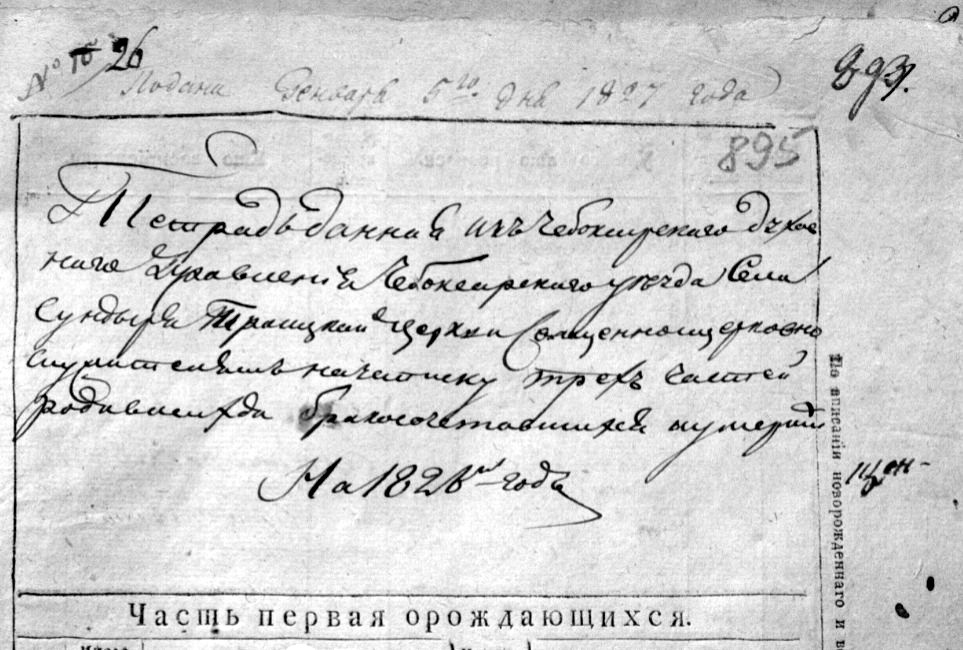 № 10 26
Подана Генваря 5го дня 1827 года
893.
895
Тетрадь данная изъ Чебоксарского духов
наго Правленія Чебоксарского уезда Села
Сундыря Троицкой Церкви Священноцерковно
служителямъ на записку трехъ частей
родившихся бракосочетавшихся и умерших
На 1826й годъ
Часть первая орождающихся.
По вписаніи новорожденнаго и